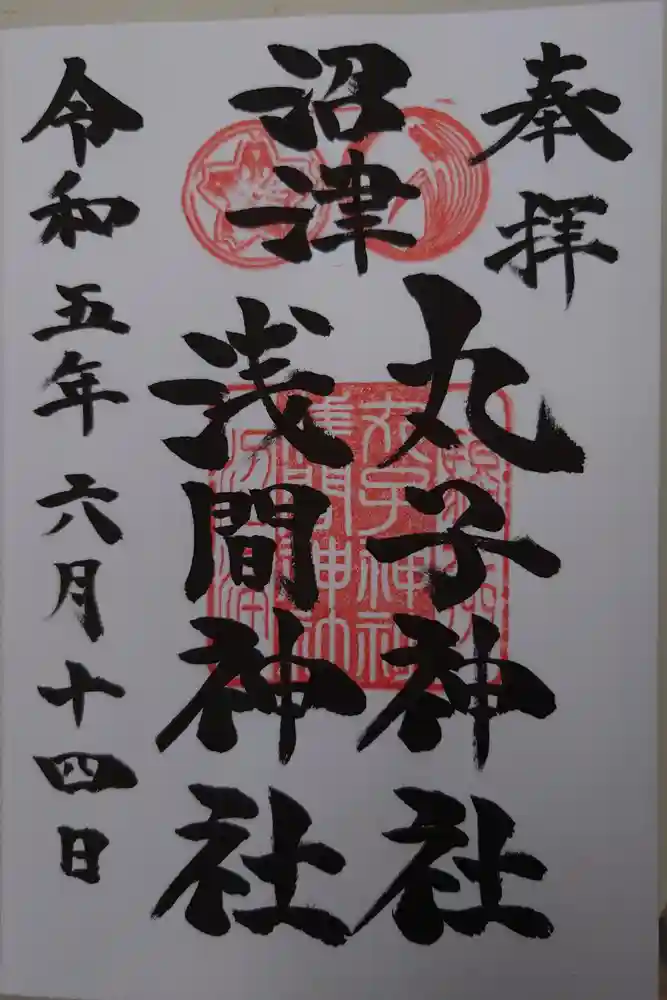 奉拝
沼津
丸子神社
浅間神社
令和五年六月十四日